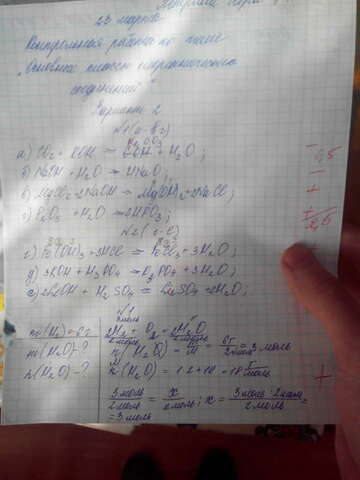 23 марта
Контрольная работа по теме
"Основные классы неорганических
соединений"
Вариант 2
№1 (а-в г)
а) CO₂ + KOH = + H₂O;
б) + H₂O = ;
в) MgCl₂ + 2NaOH = Mg(OH)₂ + 2NaCl;
г) P₂O₅ + H₂O = 2HPO₃;
№2 (г-е)
г) Fe(OH)₃ + 3HCl = FeCl₃ + 3H₂O;
д) 3KOH + H₃PO₄ = K₃PO₄ + 3H₂O;
е) + H₂SO₄ = + 2H₂O;
m(H₂) = 6г
m(H₂O) - ?
n(H₂O) - ?
2H₂ + O₂ = 2H₂O
2моль 2моль
= 3 моль
(H₂O) = 1·2+16 = 18 г/моль
3моль/2моль = x/2моль; x = 3моль·2моль/2моль =
= 3моль